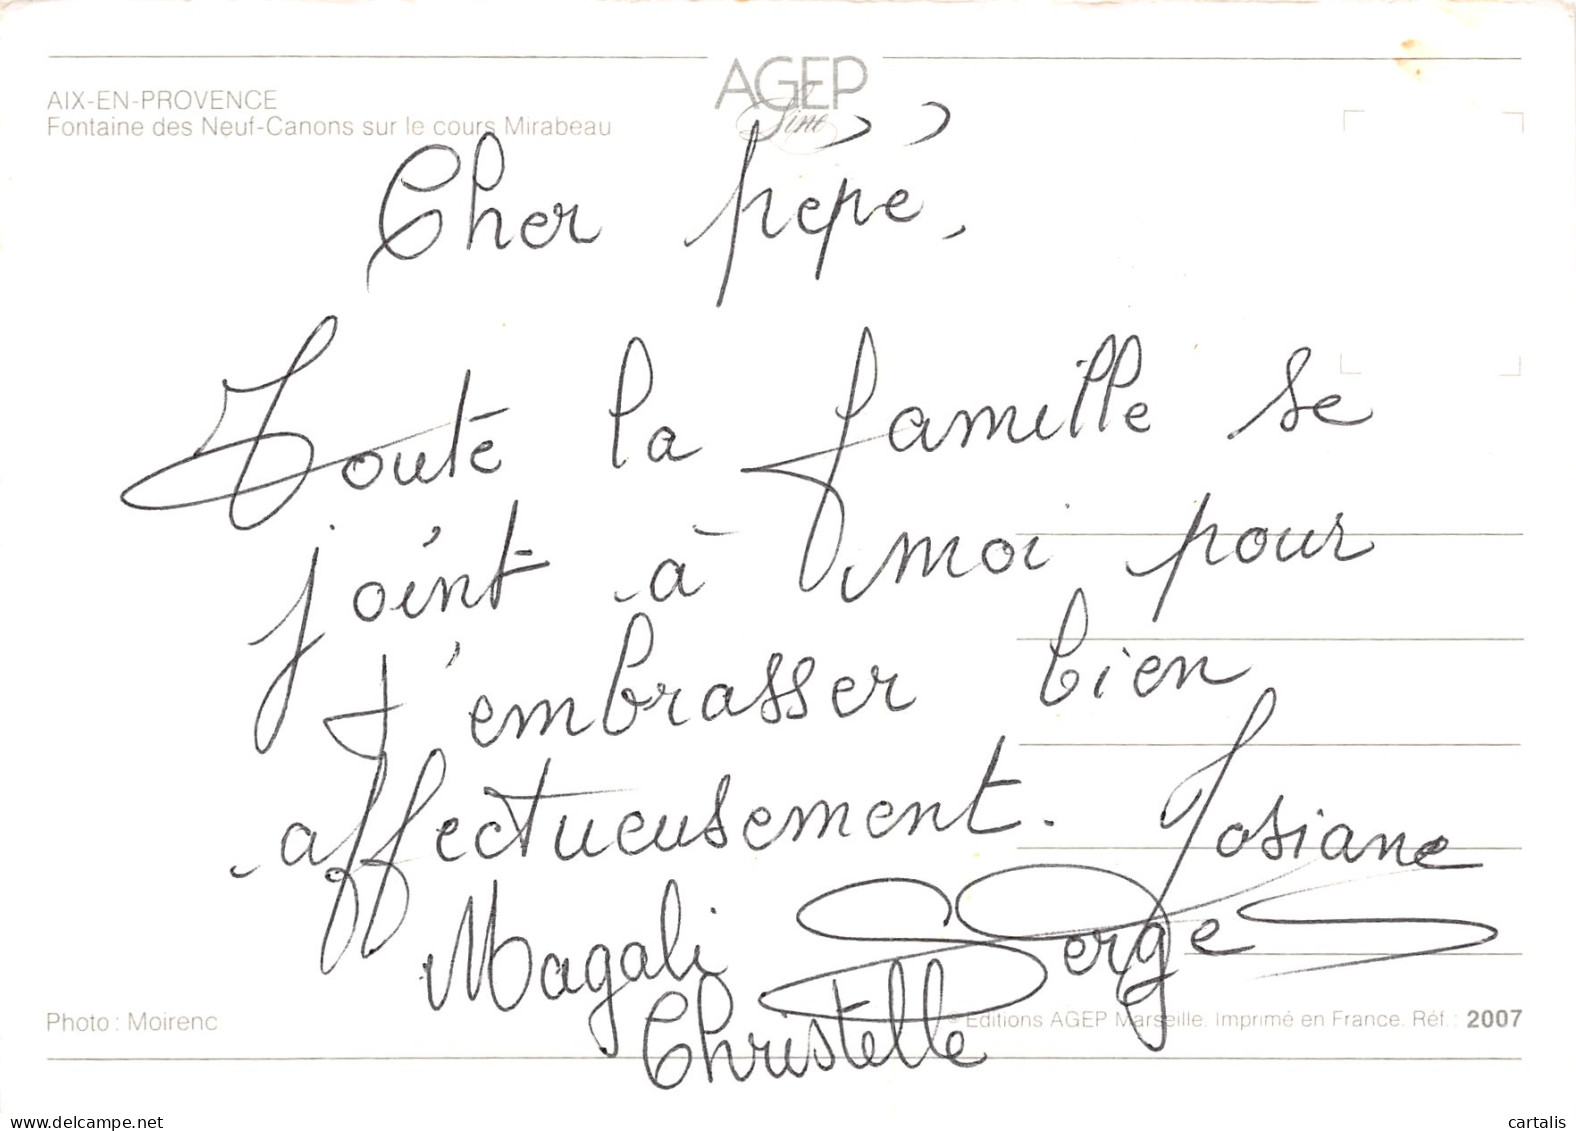 AGEP
Line
AIX-EN-PROVENCE
Fontaine des Neuf-Canons sur le cours Mirabeau
Cher pépé,
Toute la famille se
joint à moi pour
t'embrasser bien
affectueusement. Josiane
Magali Serge
Christelle
Photo : Moirenc
© Editions AGEP Marseille. Imprimé en France. Réf. : 2007
delcampe.net
cartalis